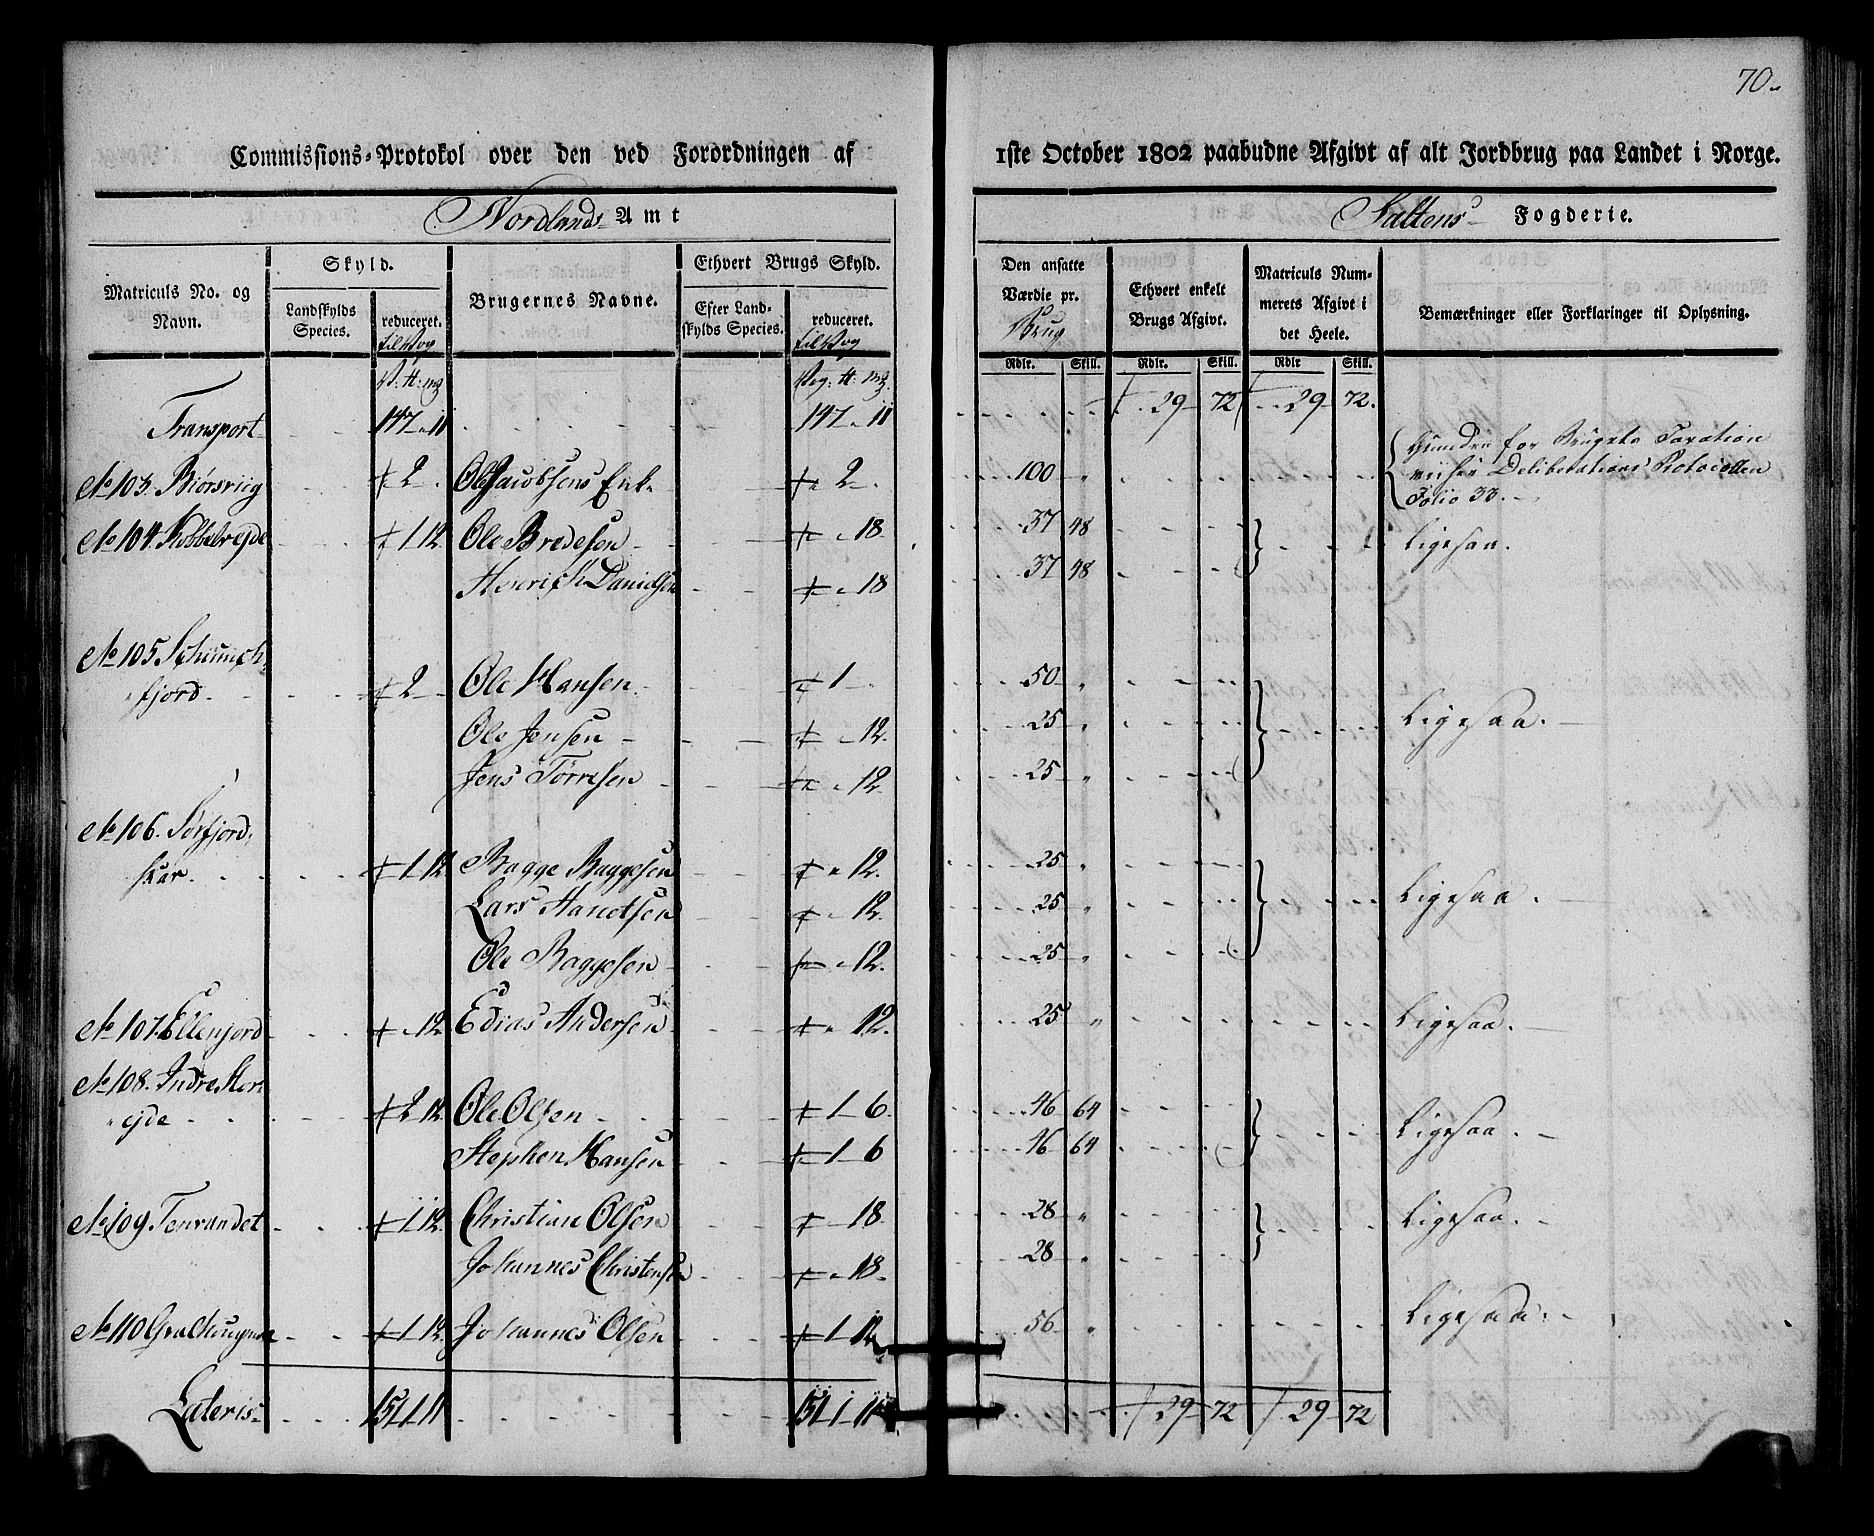 70.
Commissions-Protokol over den ved Forordningen af 1ste October 1802 paabudne Afgivt af alt Jordbrug paa Landet i Norge.
Nordlands Amt
Saltens Fogderie.
Matriculs No. og Navn.
Skyld.
Landskylds Species.
reduceret. til Vog
Brugernes Navne.
Ethvert Brugs Skyld.
Efter Landskylds Species.
reduceret. til Vog
Den ansatte Værdie pr. Brug
Ethvert enkelt Brugs Afgivt.
Matriculs Nummerets Afgivt i det Heele.
Bemærkninger eller Forklaringer til Oplysning.
Rdlr. Skill. Rdlr. Skill. Rdlr Skill.
Transport 147 - 11 147 - 11 29 72 29 72.
No 103. Biørsvig 2 Ole Jacobsens Enk. 2 100 "
for Brugets Taxation
viser Deliberations Protocollen
Folio 33.
No 104. Kobbelvejde 1 12 Ole Bredesen 18 37 48 Ligesaa.
Henrich Danielsen 18 37 48
No 105
fjord 2 Ole Hansen 1 50 "
Ole Jensen 12. 25 " Ligesaa.
Jens Tørresen 12. 25 "
No 106. Sørfjord
skar. 1 12 Bagge Baggesen 12. 25 "
Lars 12. 25 " Ligesaa.
Ole Baggesen 12. 25 "
No 107. Ellenfjord 12 Edias Andersen 12. 25 " Ligesaa.
No 108. Indre Stor
ejde 2 12. Ole Olsen 1 6. 46 64
Stephen Hansen 1 6 46 64 Ligesaa.
No 109 Tenvandet 1 12. Christian Olsen 18. 28 " Ligesaa.
Johannes Christensen 18. 28 "
No 110 1 12. Johannes Olsen 1 12 56 " Ligesaa.
Lateris 151 1 11 151 1 11 29 72 29 72